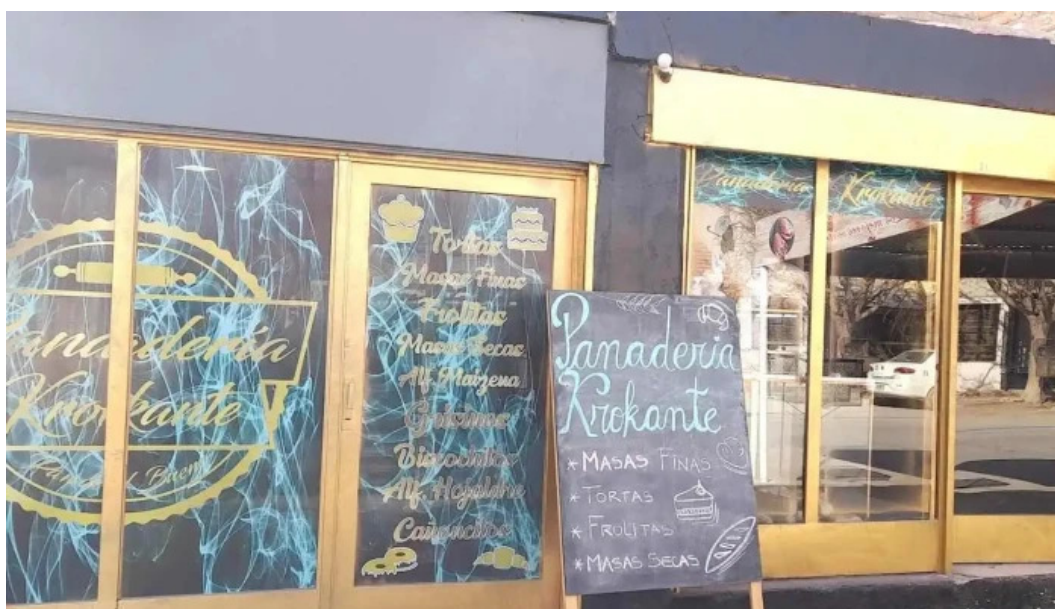 Panadería
Krokante
Tortas
Masas Finas
Frolitas
Masas Secas
Alf. Maizena
Grisines
Bizcochitos
Alf. Hojaldre
Cañoncitos
Panaderia
Krokante
* MASAS FINAS
* TORTAS
* FROLITAS
* MASAS SECAS
Panaderia
Krokante